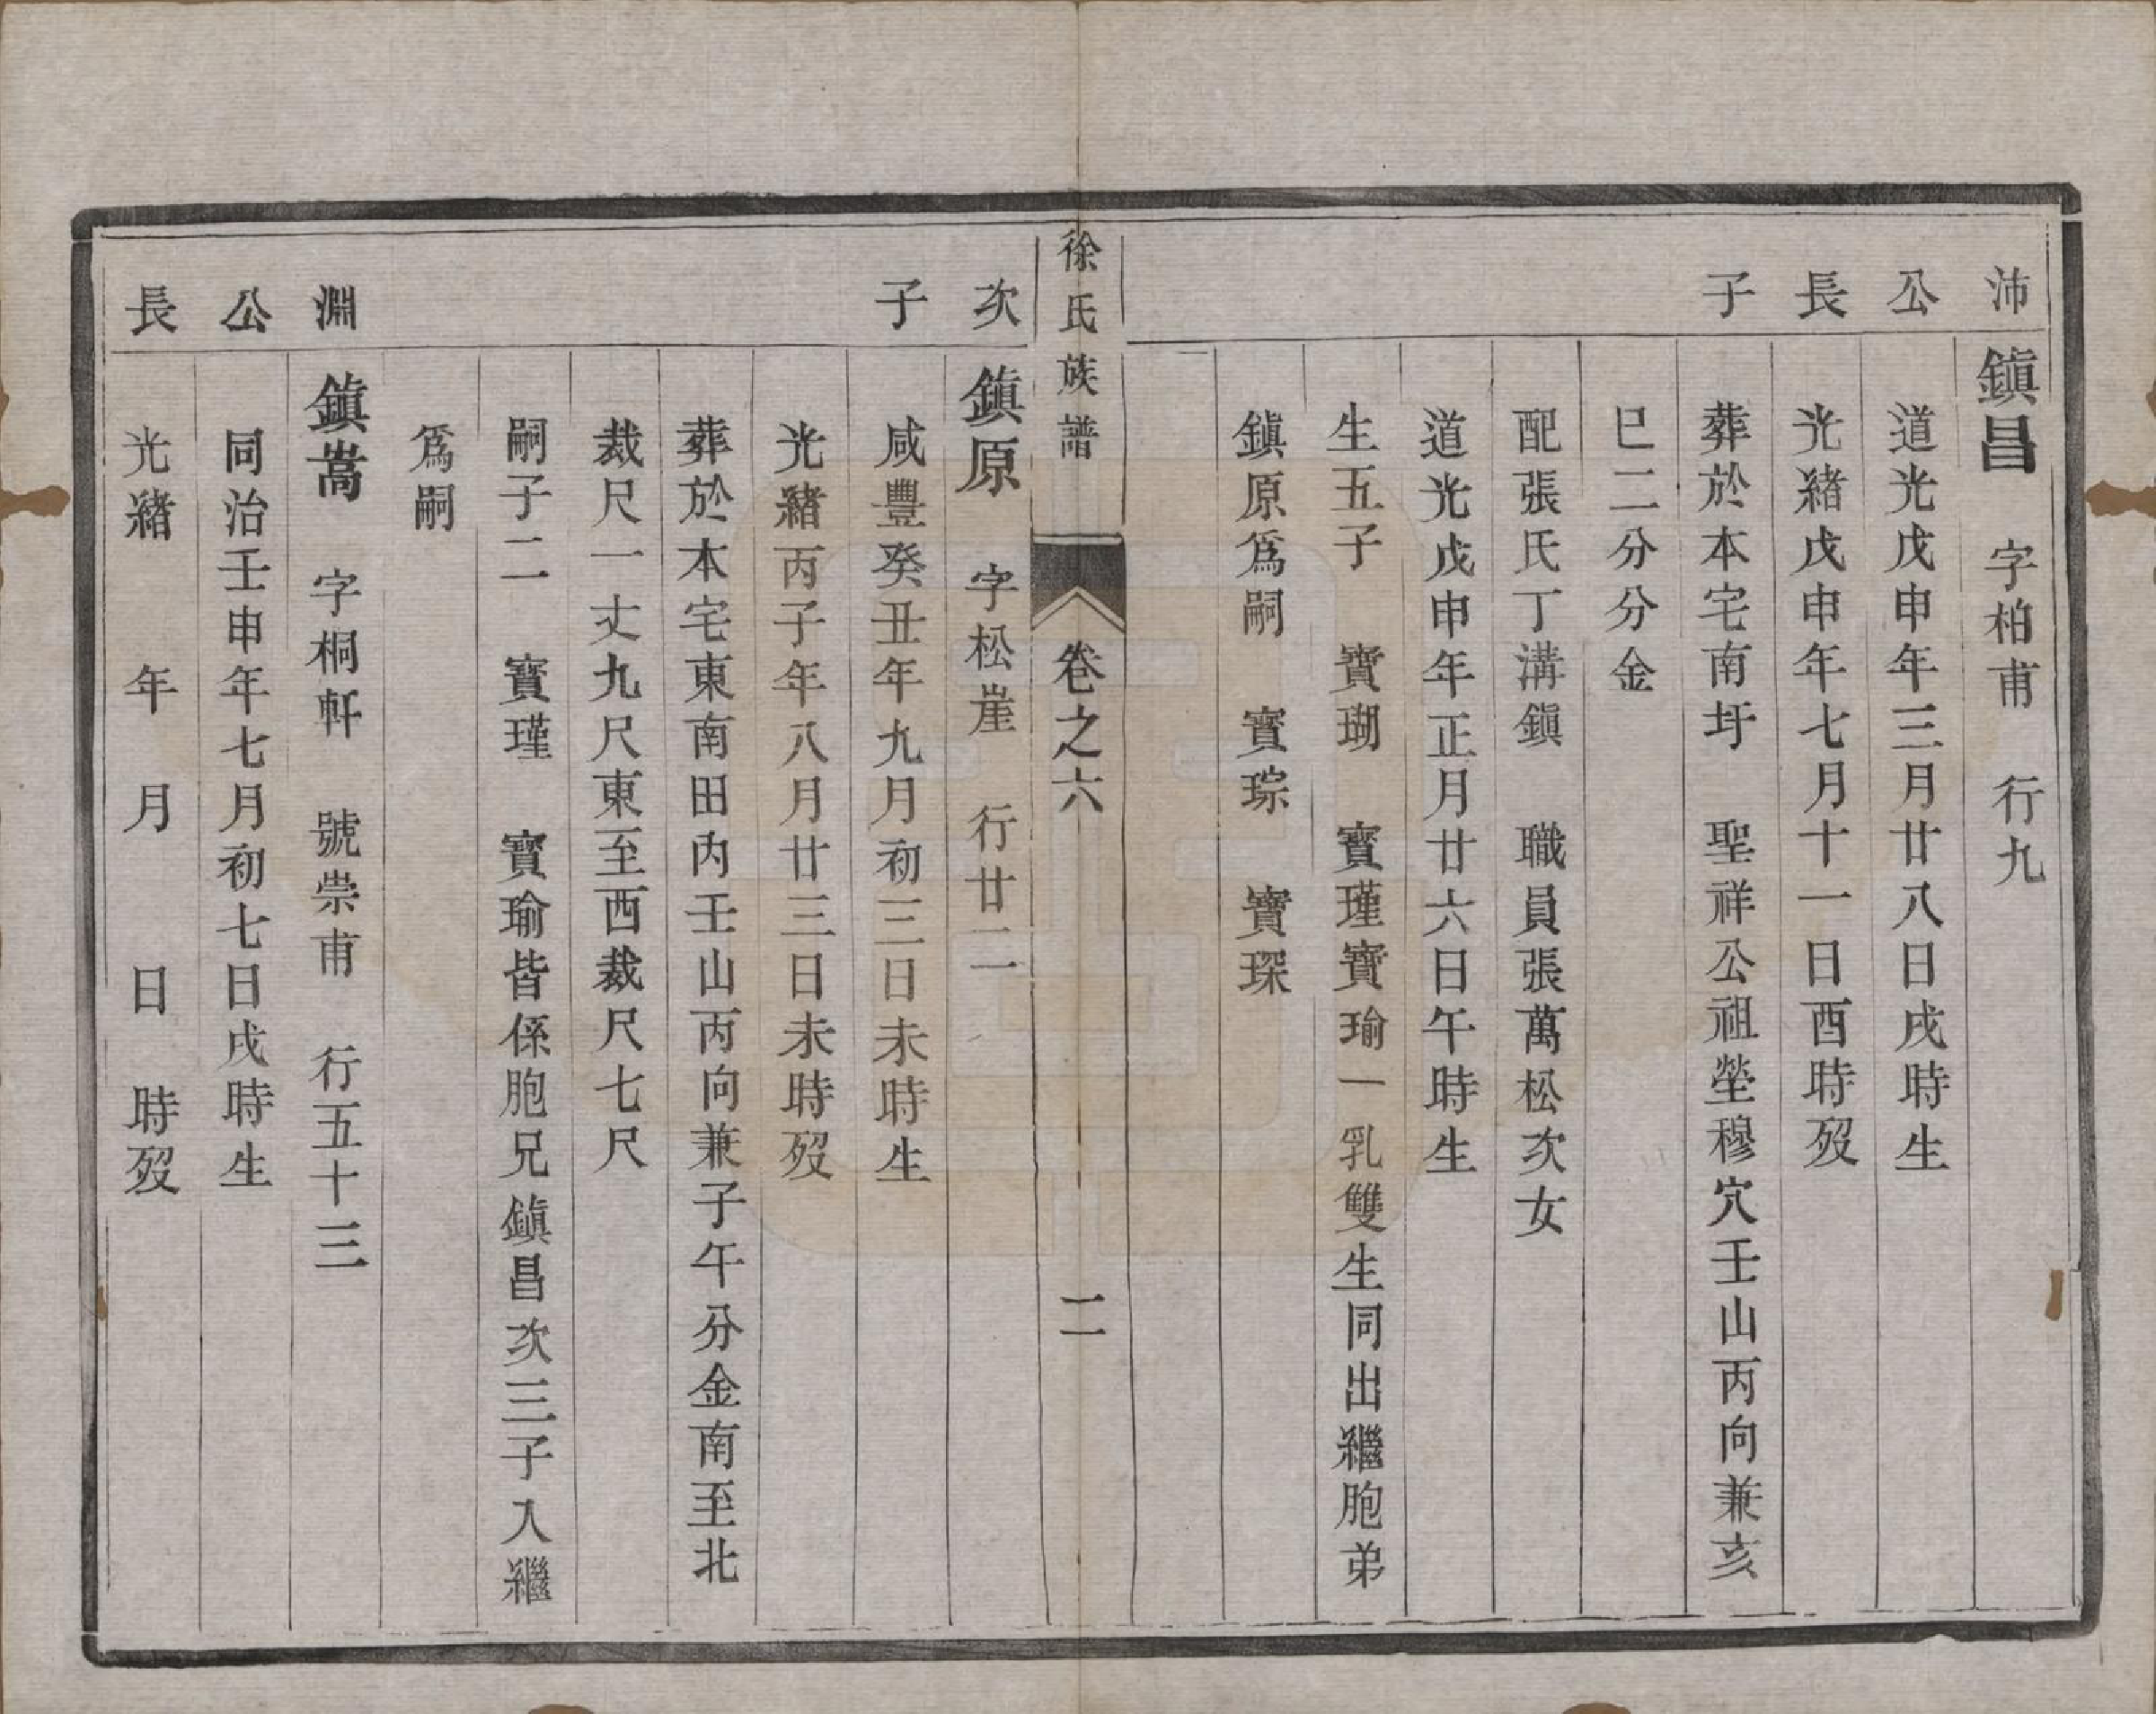 沛 鎮昌 字柏甫 行九
公 道光戊申年三月廿八日戌時生
長 光緒戊申年七月十一日酉時歿
子 葬於本宅南圩 聖祥公祖塋穆穴壬山丙向兼亥
巳二分分金
配張氏丁溝鎮 職員張萬松次女
道光戊申年正月廿六日午時生
生五子 寶瑚 寶瑾寶瑜一乳雙生同出繼胞弟
鎮原爲嗣 寶琮 寶琛
徐氏族譜 卷之六 二
次 鎮原 字松崖 行廿二
子 咸豐癸丑年九月初三日未時生
光緒丙子年八月廿三日未時歿
葬於本宅東南田内壬山丙向兼子午分金南至北
裁尺一丈九尺東至西裁尺七尺
嗣子二 寶瑾 寶瑜皆係胞兄鎮昌次三子入繼
爲嗣
淵 鎮嵩 字桐軒 號崇甫 行五十三
公 同治壬申年七月初七日戌時生
長 光緒 年 月 日 時歿